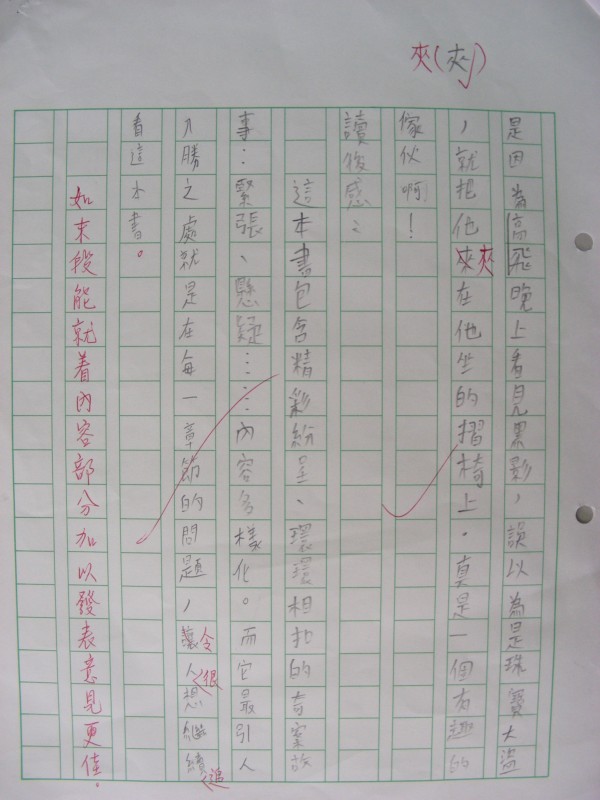 夾(夾)
是因為高飛晚上看見黑影，誤以為是珠寶大盜
，就把他夾夾在他坐的摺椅上。真是一個有趣的
傢伙啊！
讀後感：
這本書包含精彩紛呈、環環相扣的奇案故
事：緊張、懸疑……內容多樣化。而它最引人
入勝之處就是在每一章節的問題，讓令人很想繼續追
看這本書。
如末段能就着內容部分加以發表意見更佳。